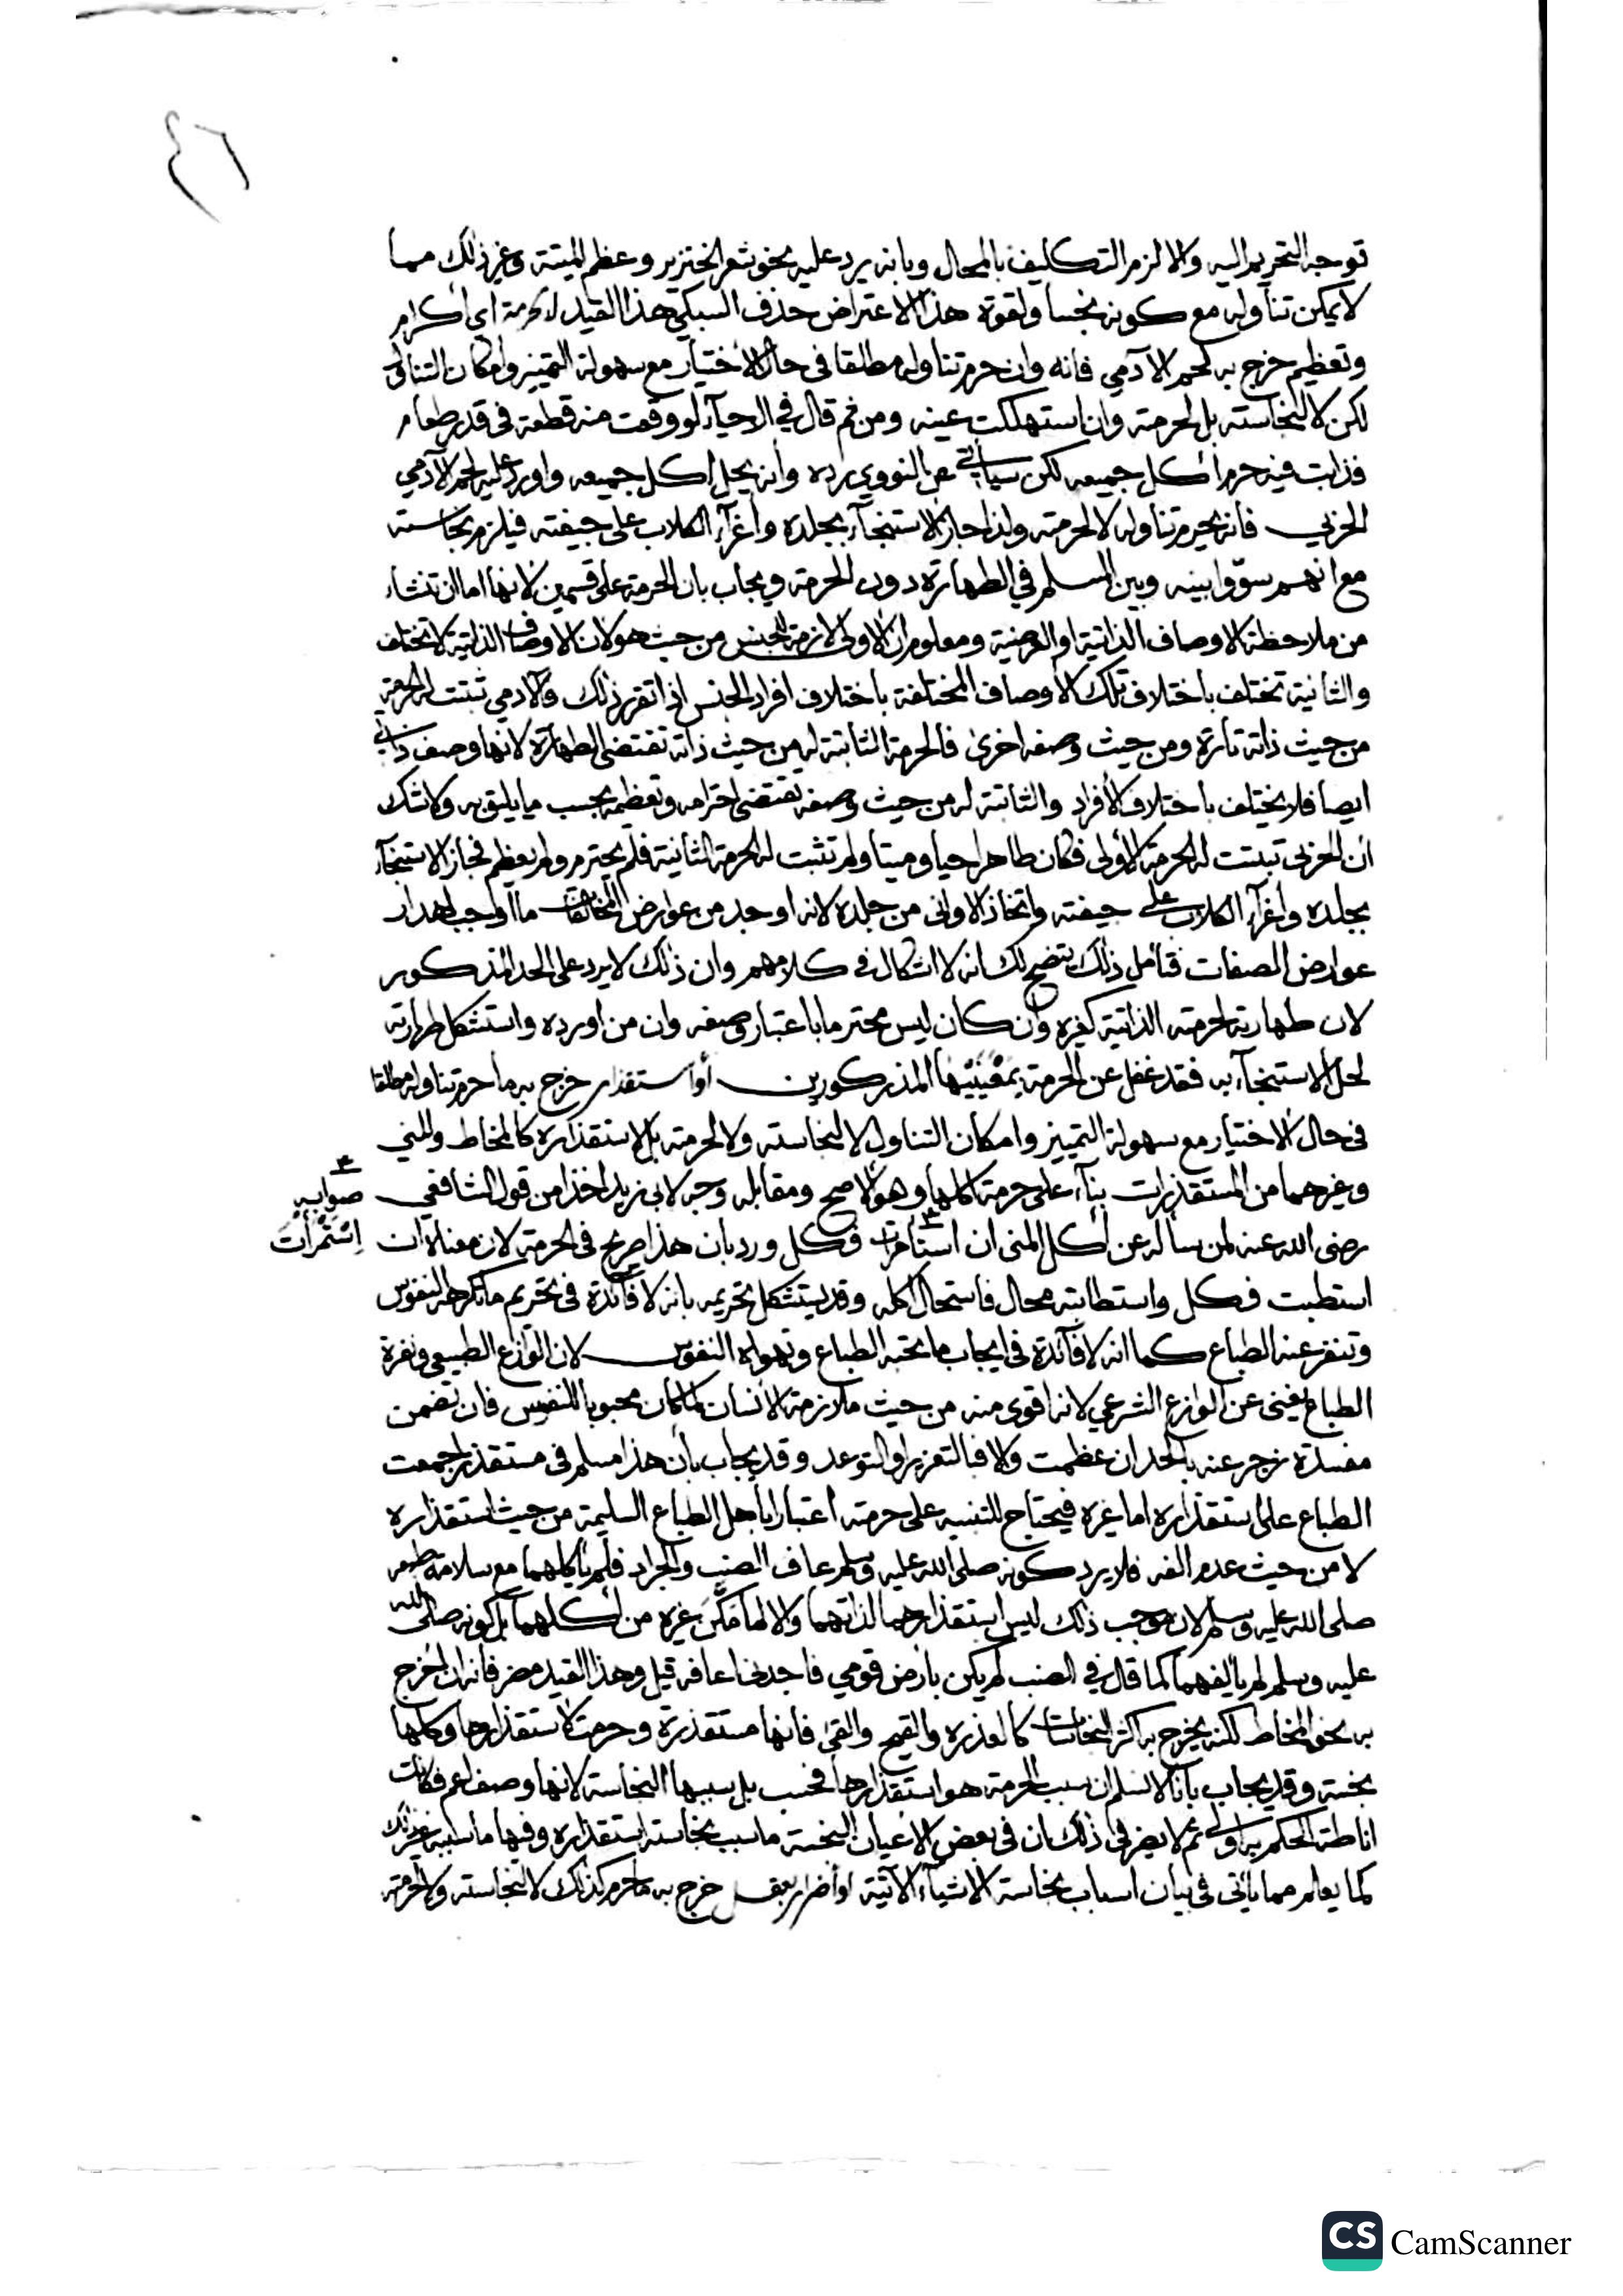 ٤٦
توجه التحريم اليه والا لزم التكليف بالمحال وبانه يرد عليه نحو شعر الخنزير وعظم الميتة وغير ذلك مما
لا يمكن تناوله مع كونه نجسا ولقوة هذا الاعتراض حذف السبكي هذا القيد لا لحرمة اي اكرام
وتعظيم خرج به لحم الآدمي فانه وان حرم تناوله مطلقا في حال الاختيار مع سهولة التمييز وامكان التناول
لكن لا لنجاسته بل لحرمته وان استهلكت عينه ومن ثم قال في الاحيآء لو وقعت منه قطعة في قدر طعام
فذابت فيه حرم اكل جميعه لكن سياتي عن النووي رده وانه يحل اكل جميعه واورد عليه لحم الآدمي
الحربي فانه يحرم تناوله لا لحرمته ولذا جاز الاستنجآء بجلده واغرآء الكلاب على جيفته فيلزم نجاسته
مع انهم سوّوا بينه وبين المسلم في الطهارة دون الحرمة ويجاب بان الحرمة على قسمين لانها اما ان تنشاء
من ملاحظة الاوصاف الذاتية او العرضية ومعلوم ان الاولى لازمة للجنس من حيث هو لان الاوصاف الذاتية لا تختلف
والثانية تختلف باختلاف تلك الأوصاف المختلفة باختلاف افراد الجنس اذا تقرر ذلك والآدمي ثبتت له الحرمة
من حيث ذاته تارة ومن حيث وصفه اخرى فالحرمة الثابتة له من حيث ذاته تقتضي الطهارة لانها وصف ذاتي
ايضا فلا يختلف باختلاف الأفراد والثابتة له من حيث وصفه تقتضي احترامه وتعظيمه بحسب ما يليق به ولا شك
ان الحربي ثبتت له الحرمة الأولى فكان طاهرا حيا وميتا ولم تثبت له الحرمة الثانية فلم يحترم ولم يعظم فجاز الاستنجآء
بجلده واغرآء الكلاب على جيفته واتخاذ الاواني من جلده لانه اوجد من عوارض المخالفات ما اوجب اهدار
عوارض الصفات فتأمل ذلك يتضح لك انه لا اشكال في كلامهم وان ذلك لا يرد على الحد المذكور
لان طهارته لحرمته الذاتية كغيره وان كان ليس محترما باعتبار وصفه وان من اورده واستشكل طهارته
لحل الاستنجآء به فقد غفل عن الحرمة بمعنييها المذكورين أو استقذار خرج به ما حرم تناوله مطلقا
في حال الاختيار مع سهولة التمييز وامكان التناول لا لنجاسته ولا لحرمته بل لاستقذاره كالمخاط والمني
وغيرهما من المستقذرات بنآء على حرمة اكلها وهو الاصح ومقابله وجه لابي زيد اخذا من قول الشافعي
رضي الله عنه لمن سأله عن أكل المني ان استأمرت فكل ورد بان هذا صريح في الحرمة لان معناه ان
صوابه
اِسْتَمْرَأْتَ
استطبت فكل واستطابته محال فاستحال اكله وقد يستشكل تحريمه بانه لا فآئدة في تحريم ما تكرهه النفوس
وتنفر عنه الطباع كما انه لا فآئدة في ايجاب ما تحبه الطباع وتهواه النفوس لان الوازع الطبيعي ونفرة
الطباع يغني عن الوازع الشرعي لانه اقوى منه من حيث ملازمة الأنسان كما كان محبوبا للنفوس فان تضمن
مفسدة زجر عنه بالحد ان عظمت والا فبالتعزير او التوعد وقد يجاب بأن هذا مسلم في مستقذر اجمعت
الطباع على استقذاره اما غيره فيحتاج للتنبيه على حرمته اعتبارا باهل الطباع السليمة من حيث استقذاره
لا من حيث عدم الفه فلا يرد كونه صلى الله عليه وسلم عاف الضب والجراد فلم يأكلهما مع سلامة طبعه
صلى الله عليه وسلم لان موجب ذلك ليس استقذارهما لذاتهما والا لما مَكَّن غيره من اكلهما بل كونه صلى الله
عليه وسلم لم يألفهما كما قال في الضب لم يكن بأرض قومي فاجدني اعافه قيل وهذا القيد مضر فانه ان اخرج
به نحو المخاط لكنه يخرج به اكثر النجاسات كالعذرة والقيح والقئ فانها مستقذرة وحرمت لاستقذارها وكلها
نجسة وقد يجاب بانا لا نسلم ان سبب الحرمة هو استقذارها فحسب بل سببها النجاسة لانها وصف اعم فكانت
اناطة الحكم به اولى ثم لا يضر في ذلك ان في بعض الاعيان النجسة ما سبب نجاسته استقذاره وفيها ما سببه غير ذلك
كما يعلم مما يأتي في بيان اسباب نجاسة الاشيآء الآتية او أضرار بعقل خرج به ما حرم كذلك لا لنجاسته ولا لحرمته
CS CamScanner